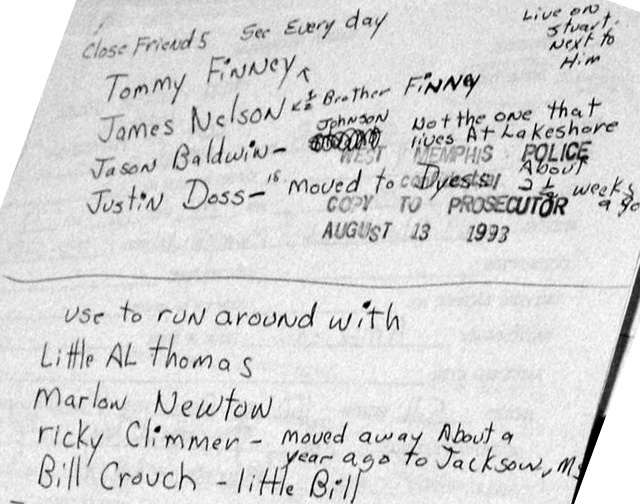 Live on
Stuart.
Next to
Him
Close Friends See Every day
Tommy Finney
James Nelson < 1/2 Brother Finney
Johnson
Jason Baldwin - Not the one that
lives At Lakeshore
WEST MEMPHIS POLICE
Justin Doss - is moved to Dyess About
2 1/2 weeks
ago
COPY TO PROSECUTOR
AUGUST 13 1993
use to run around with
Little AL thomas
Marlow Newton
ricky Climmer - moved away About a
year ago to Jackson, Ms
Bill Crouch - little Bill